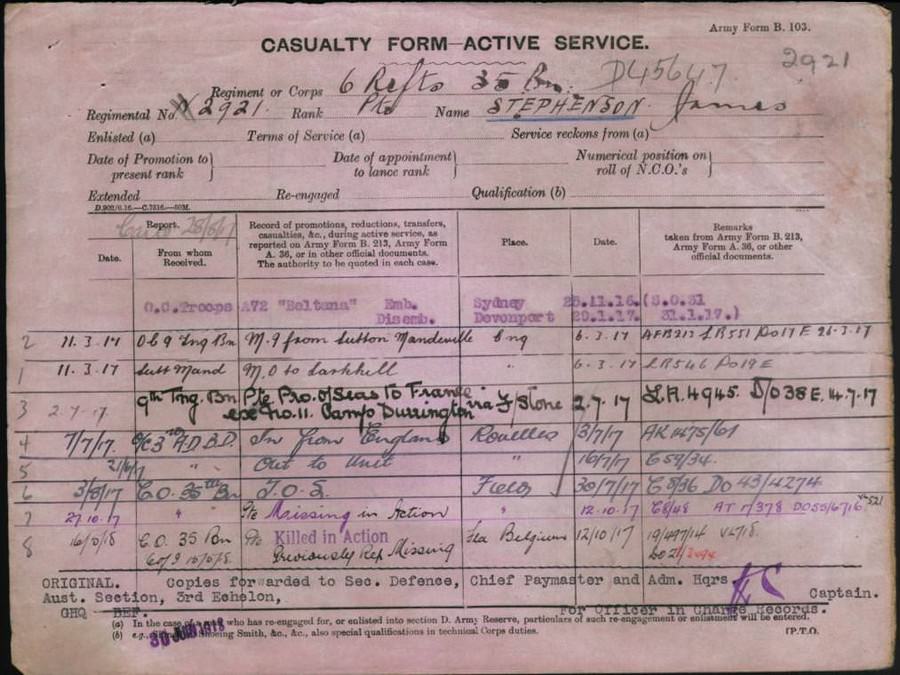 Army Form B. 103.
CASUALTY FORM—ACTIVE SERVICE.
2921
Regiment or Corps 6 Refts 35 Bn. D45647
Regimental No. 2921 Rank Pte Name STEPHENSON James
Enlisted (a) Terms of Service (a) Service reckons from (a)
Date of Promotion to present rank } Date of appointment to lance rank } Numerical position on roll of N.C.O.'s }
Extended Re-engaged Qualification (b)
Report. Date. From whom Received.
Record of promotions, reductions, transfers, casualties, &c., during active service, as reported on Army Form B. 213, Army Form A. 36, or in other official documents. The authority to be quoted in each case.
Place.
Date.
Remarks taken from Army Form B. 213, Army Form A. 36, or other official documents.
O.C.Troops A72 "Beltana" Emb. Sydney 25.11.16.(S.O.31
Disemb. Devonport 29.1.17. 31.1.17.)
2 11.3.17 O C 9 Tng Bn M.I from Sutton Mandeville Eng 6.3.17 AFB213 LR551 Do17E 26.3.17
1 11.3.17 Sutt Mand M.O to Larkhill " 6.3.17 LR546 Do19E
3 2.7.17. 9th Tng. Bn Pte Pro. o/Seas to France via F/Stone 2.7.17 L.R.4945. D/O38E. 14.7.17
exe No.11. Camp Durrington
4 7/7/17. O/C 3rd A.D.B.D. In from England Rouelles 3/7/17 AK1475/61
5 " Out to Unit " 16/7/17 C59/34.
6 3/8/17 C.O. 35th Bn T.O.S. Field 30/7/17 C8/36 DO 43/4274
7 27.10.17 " Pte Missing in Action " 12.10.17 C8/48 AT 7/378 DO55/6716
8 C.O. 35 Bn Pte Killed in Action Belgium 12/10/17
Previously Rep Missing
ORIGINAL. Copies forwarded to Sec. Defence, Chief Paymaster and Adm. Hqrs
Aust. Section, 3rd Echelon, Captain.
GHQ BEF. For Officer in Charge Records.
(a) In the case of who has re-engaged for, or enlisted into section D. Army Reserve, particulars of such re-engagement or enlistment will be entered.
(b) e.g., Shoeing Smith, &c., &c., also special qualifications in technical Corps duties. [P.T.O.